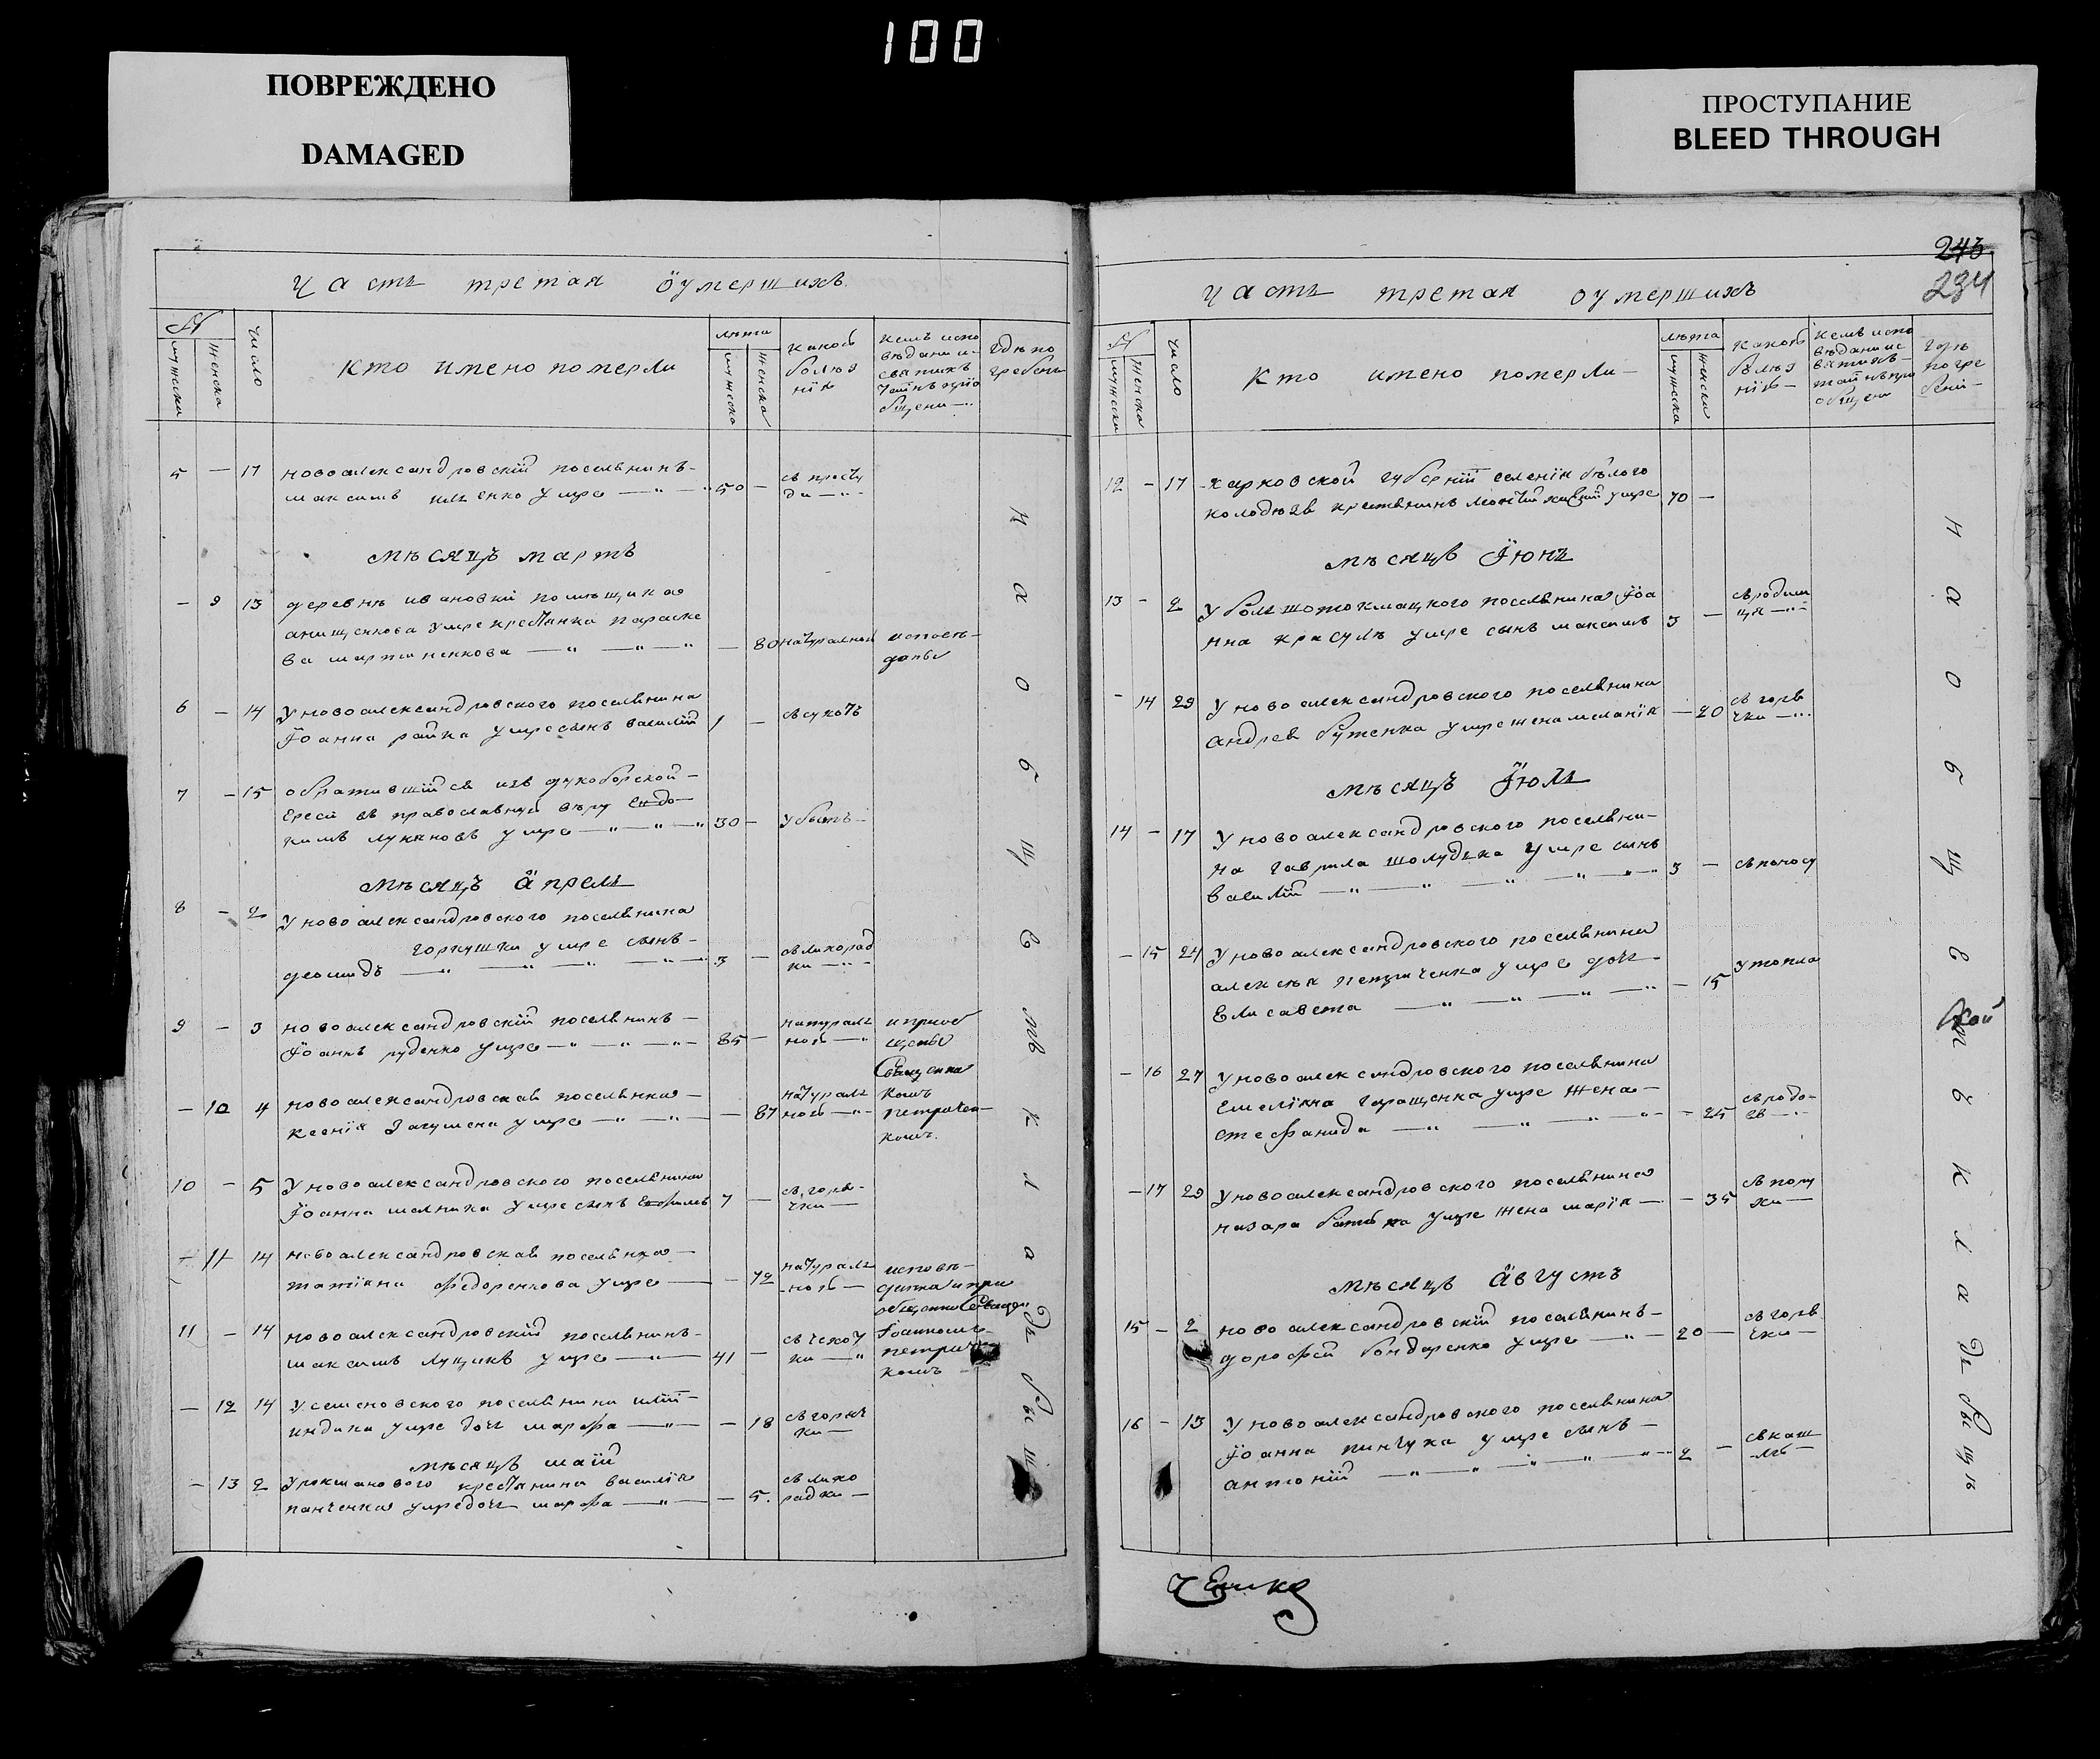 100
ПОВРЕЖДЕНО
DAMAGED
ПРОСТУПАНИЕ
BLEED THROUGH
Часть третая ӱумершихъ
№
мужеска
женска
число
кто имено померли
лѣта
мужеска
женска
какой
болѣз
нїи
кемъ испо
вѣдани и
святихъ
таинъ прїо
бщени
гдѣ по
гребени
5 — 17 новоалександровскїй поселянинъ
максимъ умре 50 — съ просту
ди
мѣсяцъ мартъ
— 9 13 деревнѣ ивановки помѣщика
анищенкова умре крестянка параске
ва мартиненкова — 80 натуралной исповѣ
даны
6 — 14 У новоалександровского поселянина
Їоанна райка умре сынъ василїй 1 — съ сухотъ
7 — 15 обратившїйся изъ духоборской
ереси въ православную вѣру Евдо
кимъ лукяновъ умре 30 — убытъ
мѣсяцъ апрель
8 — 2 У новоалександровского поселянина
горкушки умре сынъ
диомидъ 3 — съ лихорад
ки
9 — 3 новоалександровскїй поселянинъ
Їоаннъ руденко умре 85 — натураль
ной и приоб
щены
Священни
10 4 новоалександровская поселянка
ксенїя умре — 87 натураль
ной комъ
петричен
комъ
10 — 5 У новоалександровского поселянина
Їоанна малника умре сынъ Ефимъ 7 — съ горя
чки
11 14 новоалександровская поселянка
татїяна федоренкова умре — 72 натураль
ной исповѣ
дана и при
общенна Священ
11 — 14 новоалександровскїй поселянинъ
максимъ лущикъ умре 41 — съ чахот
ки Їоанномъ
петричен
комъ
— 12 14 У семеновского поселянина
умре дочь марфа — 18 съ горяч
ки
мѣсяцъ маїй
— 13 2 крестянина василїя
панченка умре дочь марфа — 5 съ лихо
радки
на общевъ кладбыщѣ
243
234
Часть третая оумершихъ
№
мужеска
женска
число
кто имено померли
лѣта
мужеска
женска
какой
болѣз
нїи
кемъ испо
вѣдани и с
вятихъ
таинъ при
общени
гдѣ
погре
бени
12 — 17 харковской губернїи селенїя бѣлого
колодязя крестянинъ умре 70 —
мѣсяцъ Їюнь
13 — 2 У болшотокмацкого поселянина Їоа
нна красулѣ умре сынъ максимъ 3 — съ родим
ця
— 14 29 У новоалександровского поселянина
андрея бутенка умре жена меланїя — 20 съ горя
чки
мѣсяцъ Їюль
14 — 17 У новоалександровского поселяни
на гаврила шолудка умре сынъ
василїй 3 — съ поносу
— 15 24 У новоалександровского поселянина
алексѣя петриченка умре дочь
Елисавета — 15 утопла
— 16 27 У новоалександровского поселянина
Емелїяна геращенка умре жена
стефанида — 25 съ родо
въ
— 17 29 У новоалександровского поселянина
назара умре жена марїя — 35
мѣсяцъ августъ
15 — 2 новоалександровскїй поселянинъ
дорофей бондаренко умре 20 — съ горя
чки
16 — 13 У новоалександровского поселянина
Їоанна пинчука умре сынъ
антонїй 2 — съ каш
лѣ
на общевъ кладбыщѣ